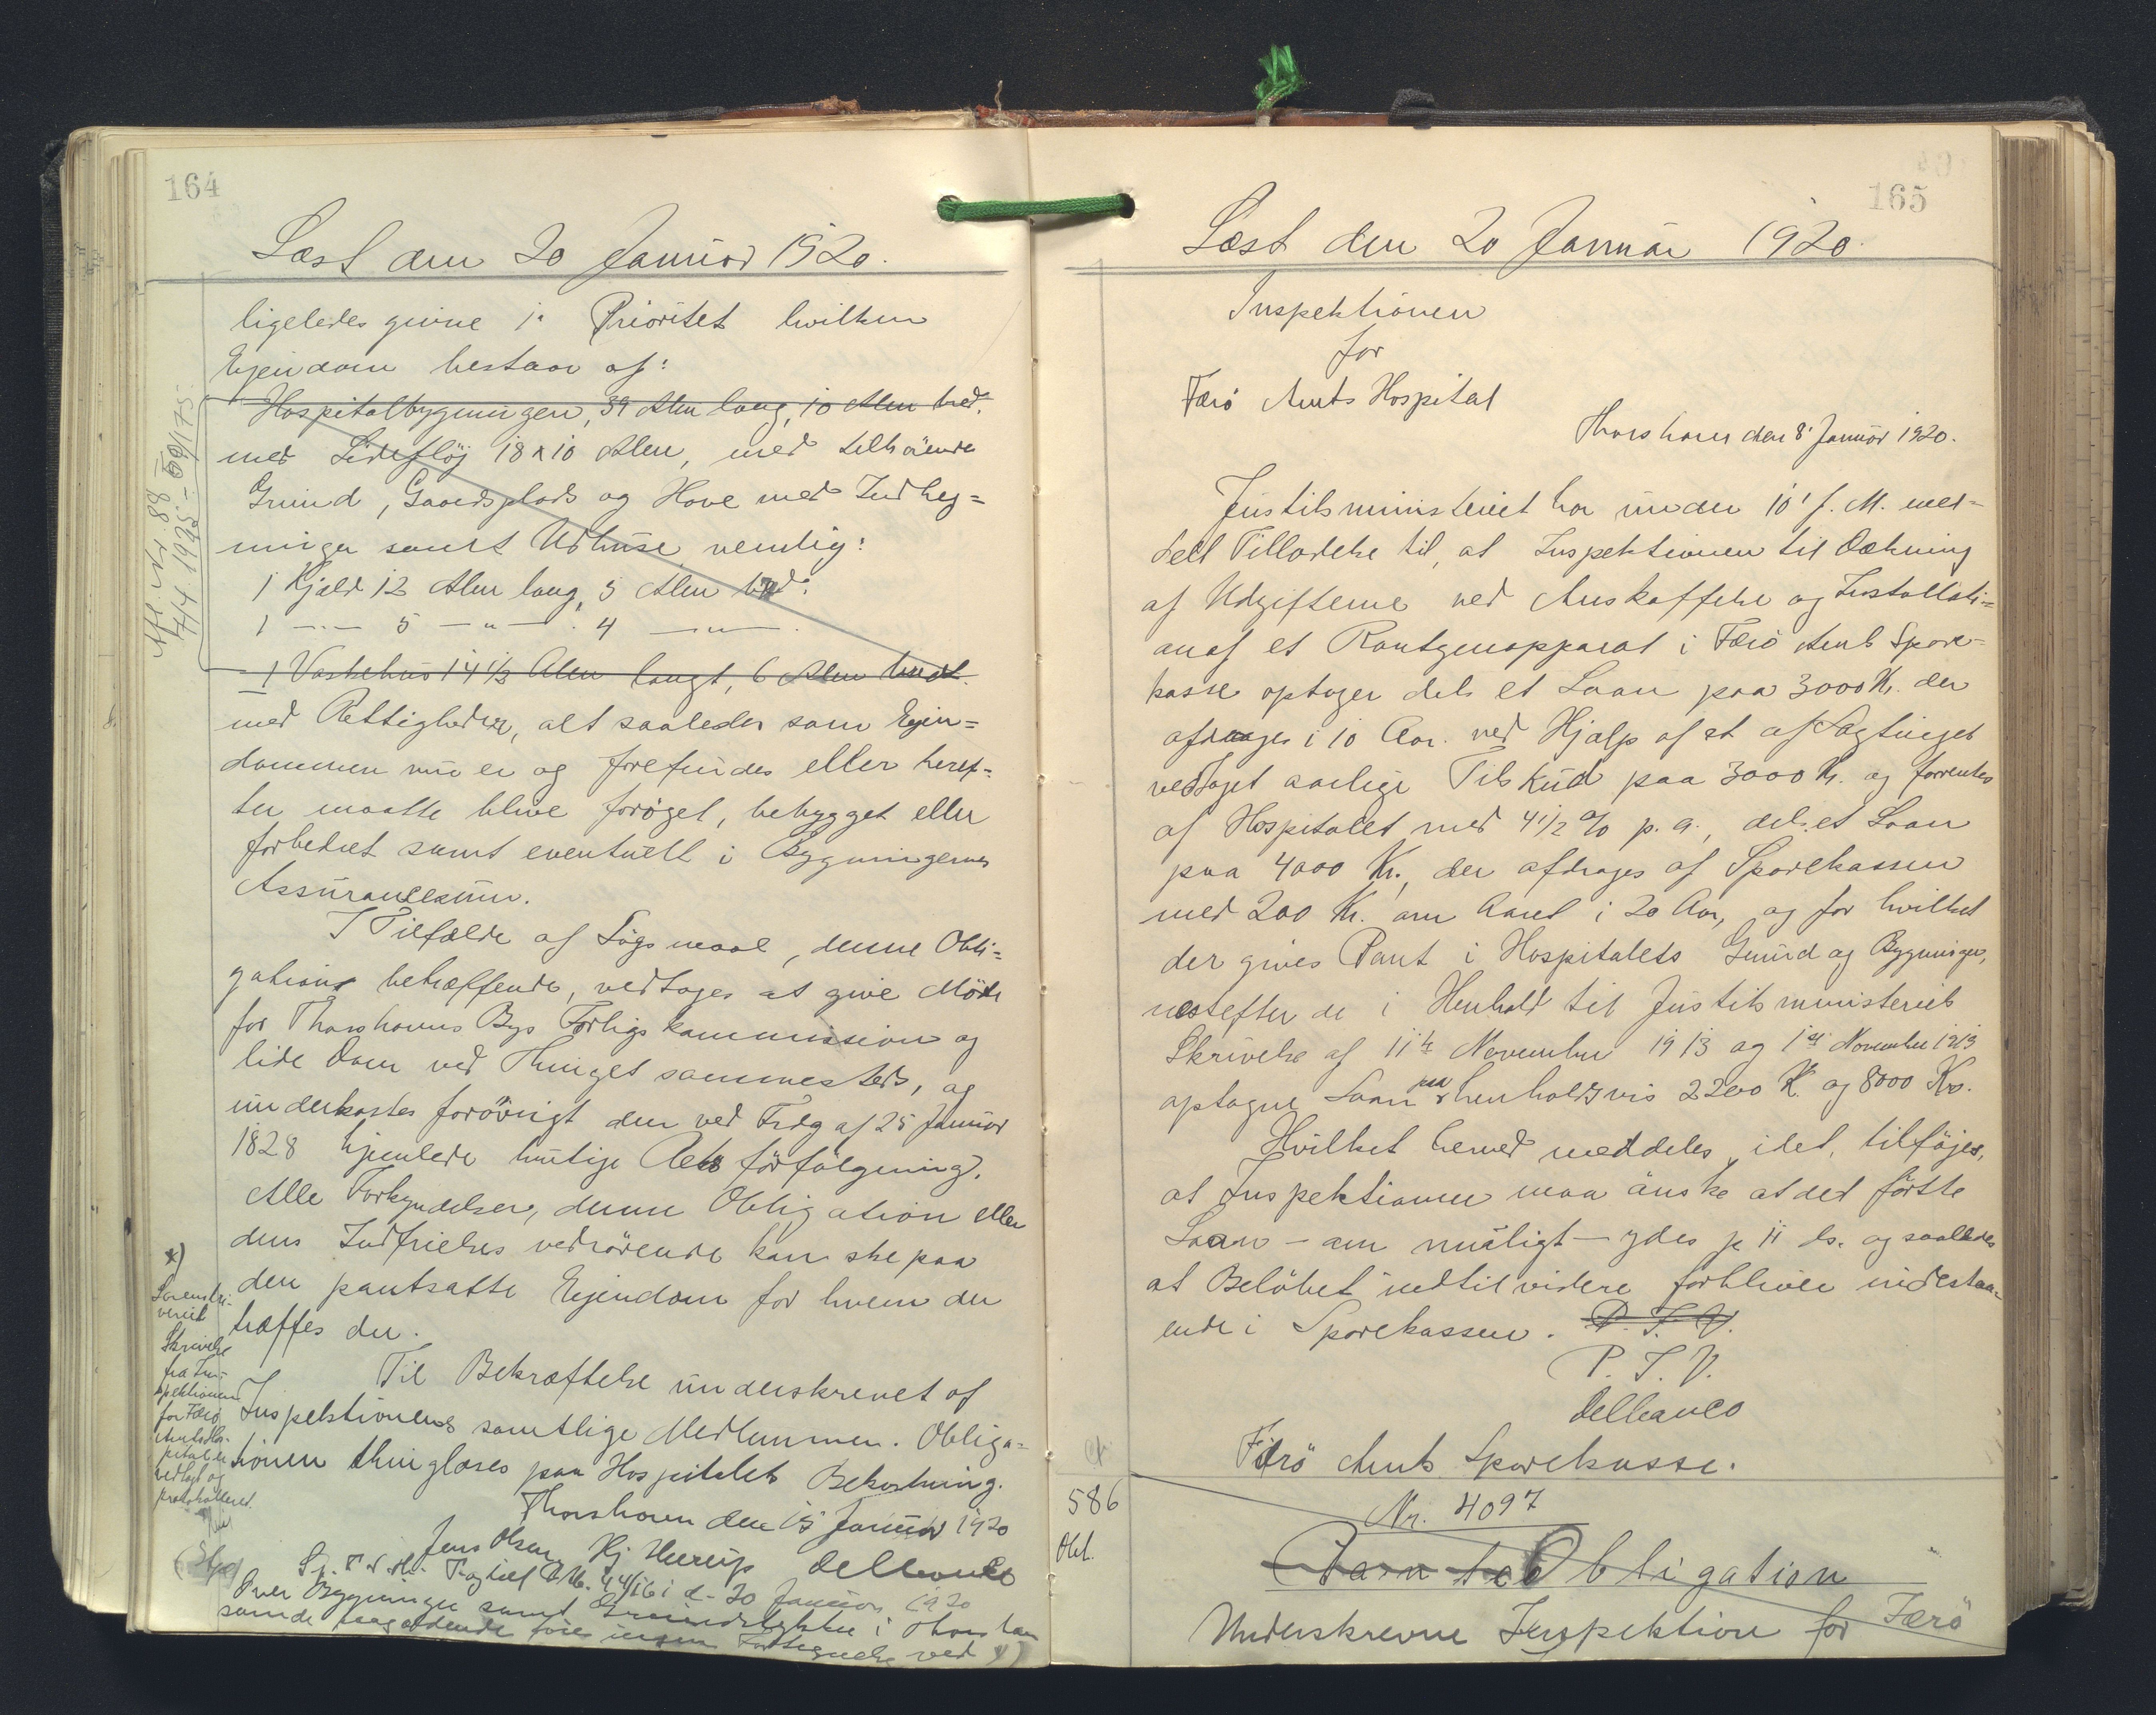 164
Læst den 20 Januar 1920.
ligeledes given 1. Prioritet hvilken
Ejendom bestaar af:
Hospitalbygningen, 39 Alen lang, 10 Alen bred.
med Sidefløj 18 x 10 Alen, med tilhørende
Grund, Gaardsplads og Have med Indheg=
ninger samt Udhuse nemlig:
1 Hjald 12 Alen lang, 5 Alen bred.
1 — 5 — " — 4 — " —.
1 Vaskehus 14 1/3 Alen langt, 6 Alen bredt.
med Rettigheder, alt saaledes som Ejen=
dommen nu er og forefindes eller heref=
ter maatte blive forøget, bebygget eller
forbedret samt eventuelt i Bygningernes
Assurancesum.
I Tilfælde af Søgsmaal, denne Obli=
gation betræffende, vedtages at give Møde
for Thorshavns Bys Forligskommission og
lide Dom ved Thinget sammesteds, og
underkastes forøvrigt den ved Frdg af 25 Januar
1828 hjemlede hurtige Retsforfølgning.
Alle Forkyndelser, denne Obligation eller
dens Indfrielses vedrørende kan ske paa
den pantsatte Ejendom for hvem der
træffes der.
Til Bekræftelse underskrevet af
Inspektionens samtlige Medlemmer. Obliga=
tionen thinglæses paa Hospitalets Bekostning.
Thorshavn den 15 Januar 1920
Jens Olsen Hj Heerup Dellbanco
d. 20 Januar 1920
Over Bygninger samt Grundstykke i Thorshavn
x)
Skrivelse
fra In=
spektionen
for Færø
Amts Hos=
pital er
vedlagt og
protokolleret.
165
Læst den 20 Januar 1920.
Inspektionen
for
Færø Amts Hospital
Thorshavn den 8' Januar 1920.
Justitsministeriet har under 10' f. M. med=
delt Tilladelse til, at Inspektionen til Dækning
af Udgifterne ved Anskaffelse og Installati=
on af et Røntgenapparat i Færø Amts Spare=
kasse optager dels et Laan paa 3000 Kr. der
afdrages i 10 Aar. ved Hjælp af et af Lagtinget
vedtaget aarlige Tilskud paa 3000 Kr. og forrentes
af Hospitalet med 4 1/2 % p. a., dels et Laan
paa 4000 Kr., der afdrages af Sparekassen
med 200 Kr. om Aaret i 20 Aar, og for hvilket
der gives Pant i Hospitalets Grund og Bygninger,
næstefter de i Henhold til Justitsministeriets
Skrivelse af 11te November 1913 og 1ste November 1919
optagne Laan paa henholdsvis 2200 K. og 8000 Kr.
Hvilket herved meddeles, idet tilføjes,
at Inspektionen maa ønske at det første
Laan — om muligt — ydes p. 11 ds. og saaledes
at Beløbet indtil videre forbliver indestaa=
ende i Sparekassen. P. I. V.
P. I. V.
Dellbanco
Færø Amts Sparekasse.
586
Obl.
Nr. 4097
Obligation
Underskrevne Inspektion for Færø